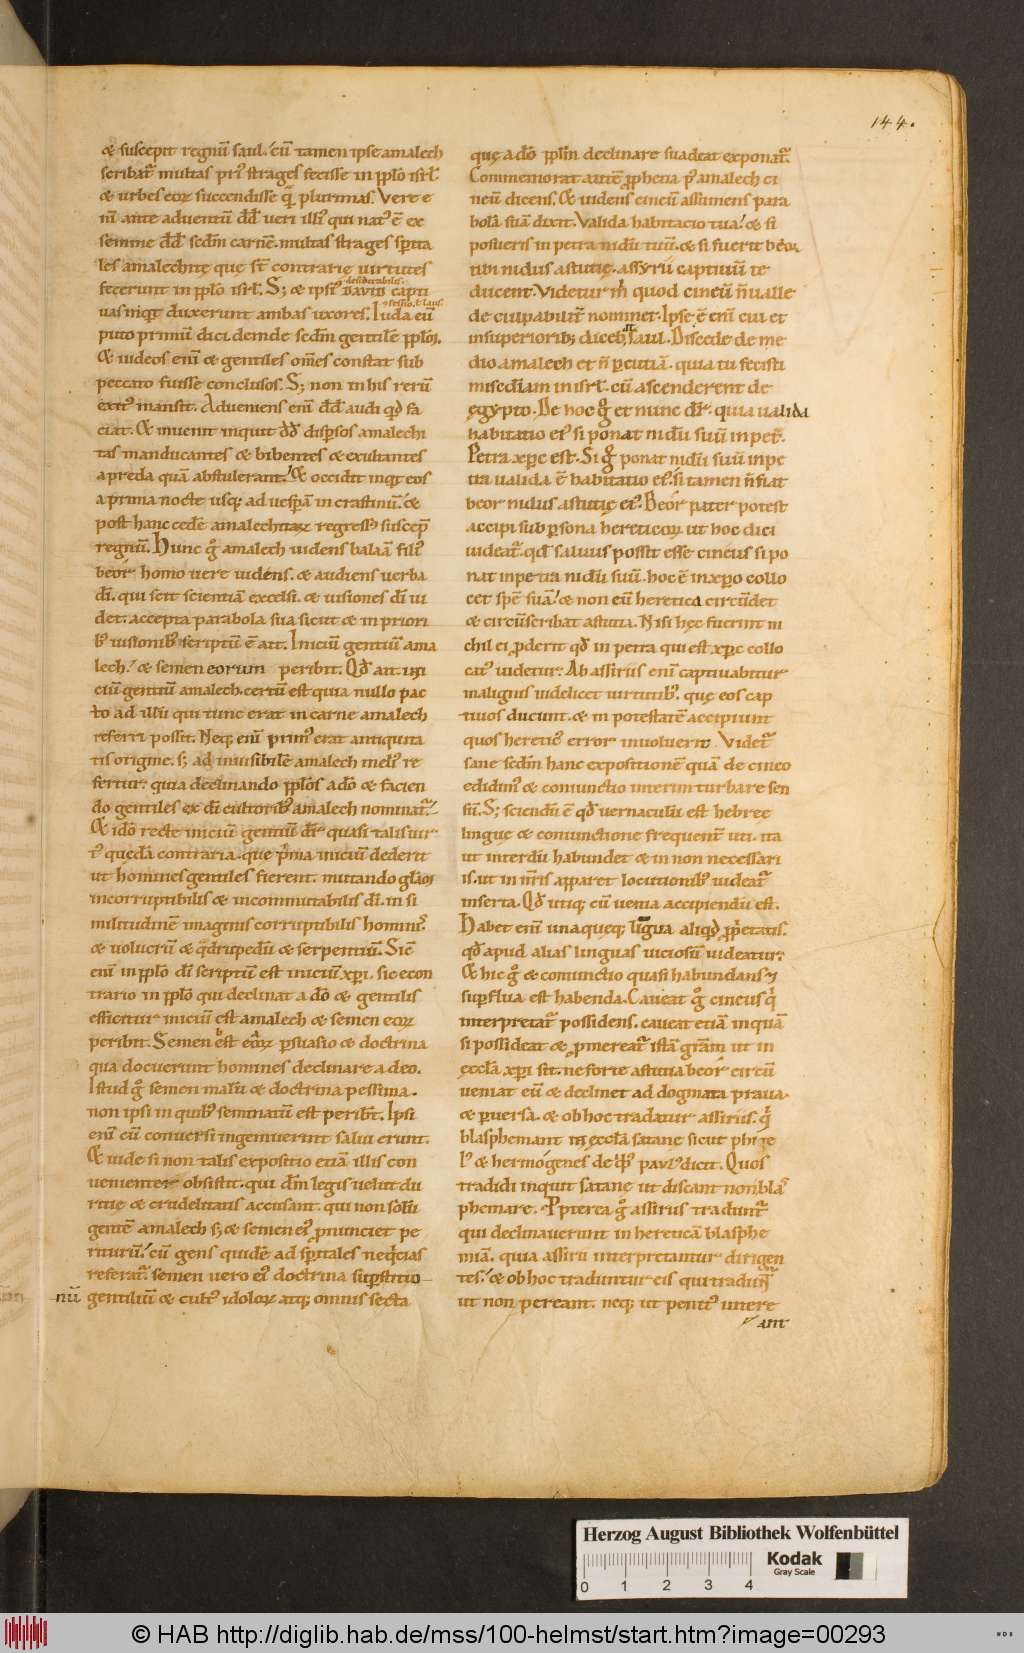 144.
& suscepit regnū saul. cū tamen ipse amalech
scribat᷑ multas pri᷒ strages fecisse in ppło isrł.
& urbes eoꝝ succendisse qͣ plurimas. Vere e
nī ante aduentū dd̄ ueri illi᷒ qui nat᷒ ē ex
semine dd̄ scdm̄ carnē. multas strages sp̄ita
les amalechitę quę s̄t contrarię uirtutes
fecerunt in ppło isrł. S; & ipsi᷒ DAVID capti
desiderabilis.
uas niqt duxerunt ambas uxores. Iuda eū
ɔfessio. ł laus.
puto primū dici. deinde scdm̄ gentilē ppłos.
& uideos enī & gentiles om̄es constat sub
peccato fuisse conclusos. S; non in his rerū
exit᷒ mansit. Adueniens enī dd̄ audi qd̄ fa
ciat. & inuenit inquit dd̄ disp̄sos amalechi
tas manducantes & bibentes & exultantes
a preda quā abstulerant. & occidit inqt eos
a prima nocte usq; ad uesp̄ā in crastinū. &
post hanc cedē amalechitaꝝ regress᷒ suscep̄
regnū. Hunc gͦ amalech uidens balaā fili᷒
beor homo uere uidens. & audiens uerba
dī. qui scit scientiā excelsi. & uisiones dī ui
det. accepta parabola sua sicut & in priori
b᷒ uisionib᷒ scriptū ē ait. Iniciū gentiū ama
lech. & semen eorum peribit. Qd̄ ait ini
ciū gentiū amalech. certū est quia nullo pac
to ad illū qui tunc erat in carne amalech
referri possit. Neq; enī prim᷒ erat antiquita
tis origine. s; ad inuisibilē amalech meli᷒ re
fertur. quia declinando ppłos a dō & facien
do gentiles ex dī cultorib᷒ amalech nominat᷑.
& idō recte iniciū gentiū dr̄ quasi talis uir
t᷒ quędā contraria. que pͥma iniciū dederit
ut homines gentiles fierent. mutando głaꝫ
incorruptibilis & incommutabilis dī. in si
militudinē imaginis corruptibilis homini᷒.
& uolucrū & qͣdrupedū & serpentiū. Sic̄
enī in ppło dī scriptū est iniciū xp̄i. sic econ
trario in ppło qui declinat a dō & gentilis
efficitur iniciū est amalech & semen eoꝝ
peribit. Semen est eoꝝ p̄suasio & doctrina
qua docuerunt homines declinare a deo.
Istud gͦ semen malū & doctrina pessima.
non ipsi in quib᷒ seminatū est perib̄t. Ipsi
enī cū conuersi ingemuerint salui erunt.
& uide si non talis expositio etiā illis con
uenienter obsistit. qui dm̄ legis uelut du
ritię & crudelitatis accusant. qui non solū
gentē amalech s; & semen ei᷒ p̄nunciet pe
riturū. cū gens quidē ad sp̄itales neqͥcias
referat᷑. semen uero ei᷒ doctrina sup̄stitio
nū gentiliū & cult᷒ idoloꝝ atq; omnis secta
quę a dō ppłm declinare suadeat exponat᷑.
Commemorat autē ꝓpheta p᷒ amalech ci
neū dicens. & uidens cineū assumens para
bolā suā dixit. Valida habitacio tua. & si
posueris in petra nidū tuū. & si fuerit beor
tibi nidus astutię. assyrii captiuū te
ducent. Videtur m̄ quod cineū n̄ ualle
de culpabilit᷑ nominet. Ipse ē enī cui et
in superiorib; diceb̄ saul. Discede de me
dio amalech et n̄ p̄cutiā. quia tu fecisti
misc̄diam in isrł. cū ascenderent de
ęgypto. De hoc gͦ et nunc dr̄. quia ualida
habitatio ei᷒ si ponat nidū suū in pet᷑.
Petra xp̄c est. Si gͦ ponat nidū suū in pe
tra ualida ē habitatio ei᷒. si tamen n̄ fiat
beor nidus astutię ei᷒. Beor pater potest
accipi sub p̄sona hereticoꝝ ut hoc dici
uideat᷑. qd̄ saluus possit esse cineus si po
nat in petra nidū suū. hoc ē in xp̄o collo
cet spē suā. & non eū heretica circūdet
& circūscribat astutia. Nisi hęc fuerint ni
chil ei ꝓderit qd̄ in petra qui est xp̄c collo
cat᷒ uidetur. Ab assiriis enī captiuabitur
malignis uidelicet uirtutib᷒. quę eos cap
tiuos ducunt. & in potestatē accipiunt
quos heretic᷒ error inuoluerit. Videt᷑
sane scdm̄ hanc expositionē quā de cineo
edidim᷒ & coniunctio interim turbare sen
sū. S; sciendū ē qd̄ uernaculū est hebreę
linguę & coniunctione frequent᷑ uti. ita
ut interdū habundet & in non necessari
is. ut in nr̄is apparet locutionib᷒ uideat᷑
inserta. Qd̄ utiq; cū uenia accipiendū est.
Habet enī unaqueq; lingua aliqd̄ ꝓp̄etatis.
qd̄ apud alias linguas uiciosū uideatur.
& hic gͦ & coniunctio quasi habundans &
sup̄flua est habenda. Caueat gͦ cineus qͥ
interpretat᷑ possidens. caueat etiā inquā
si possideat & ꝓmereat᷑ istā gr̄am ut in
ęccła xp̄i sit. ne forte astutia beor circū
ueniat eū & declinet ad dogmata praua.
& p̄uersa. & ob hoc tradatur assiriis. qͥ
blasphemant in ęccła satane sicut phige
l᷒ & hermogenes de qͥb᷒ paul᷒ dicit. Quos
tradidi inquit satanę ut discant non blas
phemare. Ppterea gͦ assiriis tradunt᷑
qui declinauerunt in hereticā blasphe
miā. quia assirii interpretantur dirigen
tes. & ob hoc traduntur eis qui tradunt᷑
ut non pereant. neq; ut penit᷒ intere
ant
Herzog August Bibliothek Wolfenbüttel
Kodak
Gray Scale
0 1 2 3 4
© HAB http://diglib.hab.de/mss/100-helmst/start.htm?image=00293